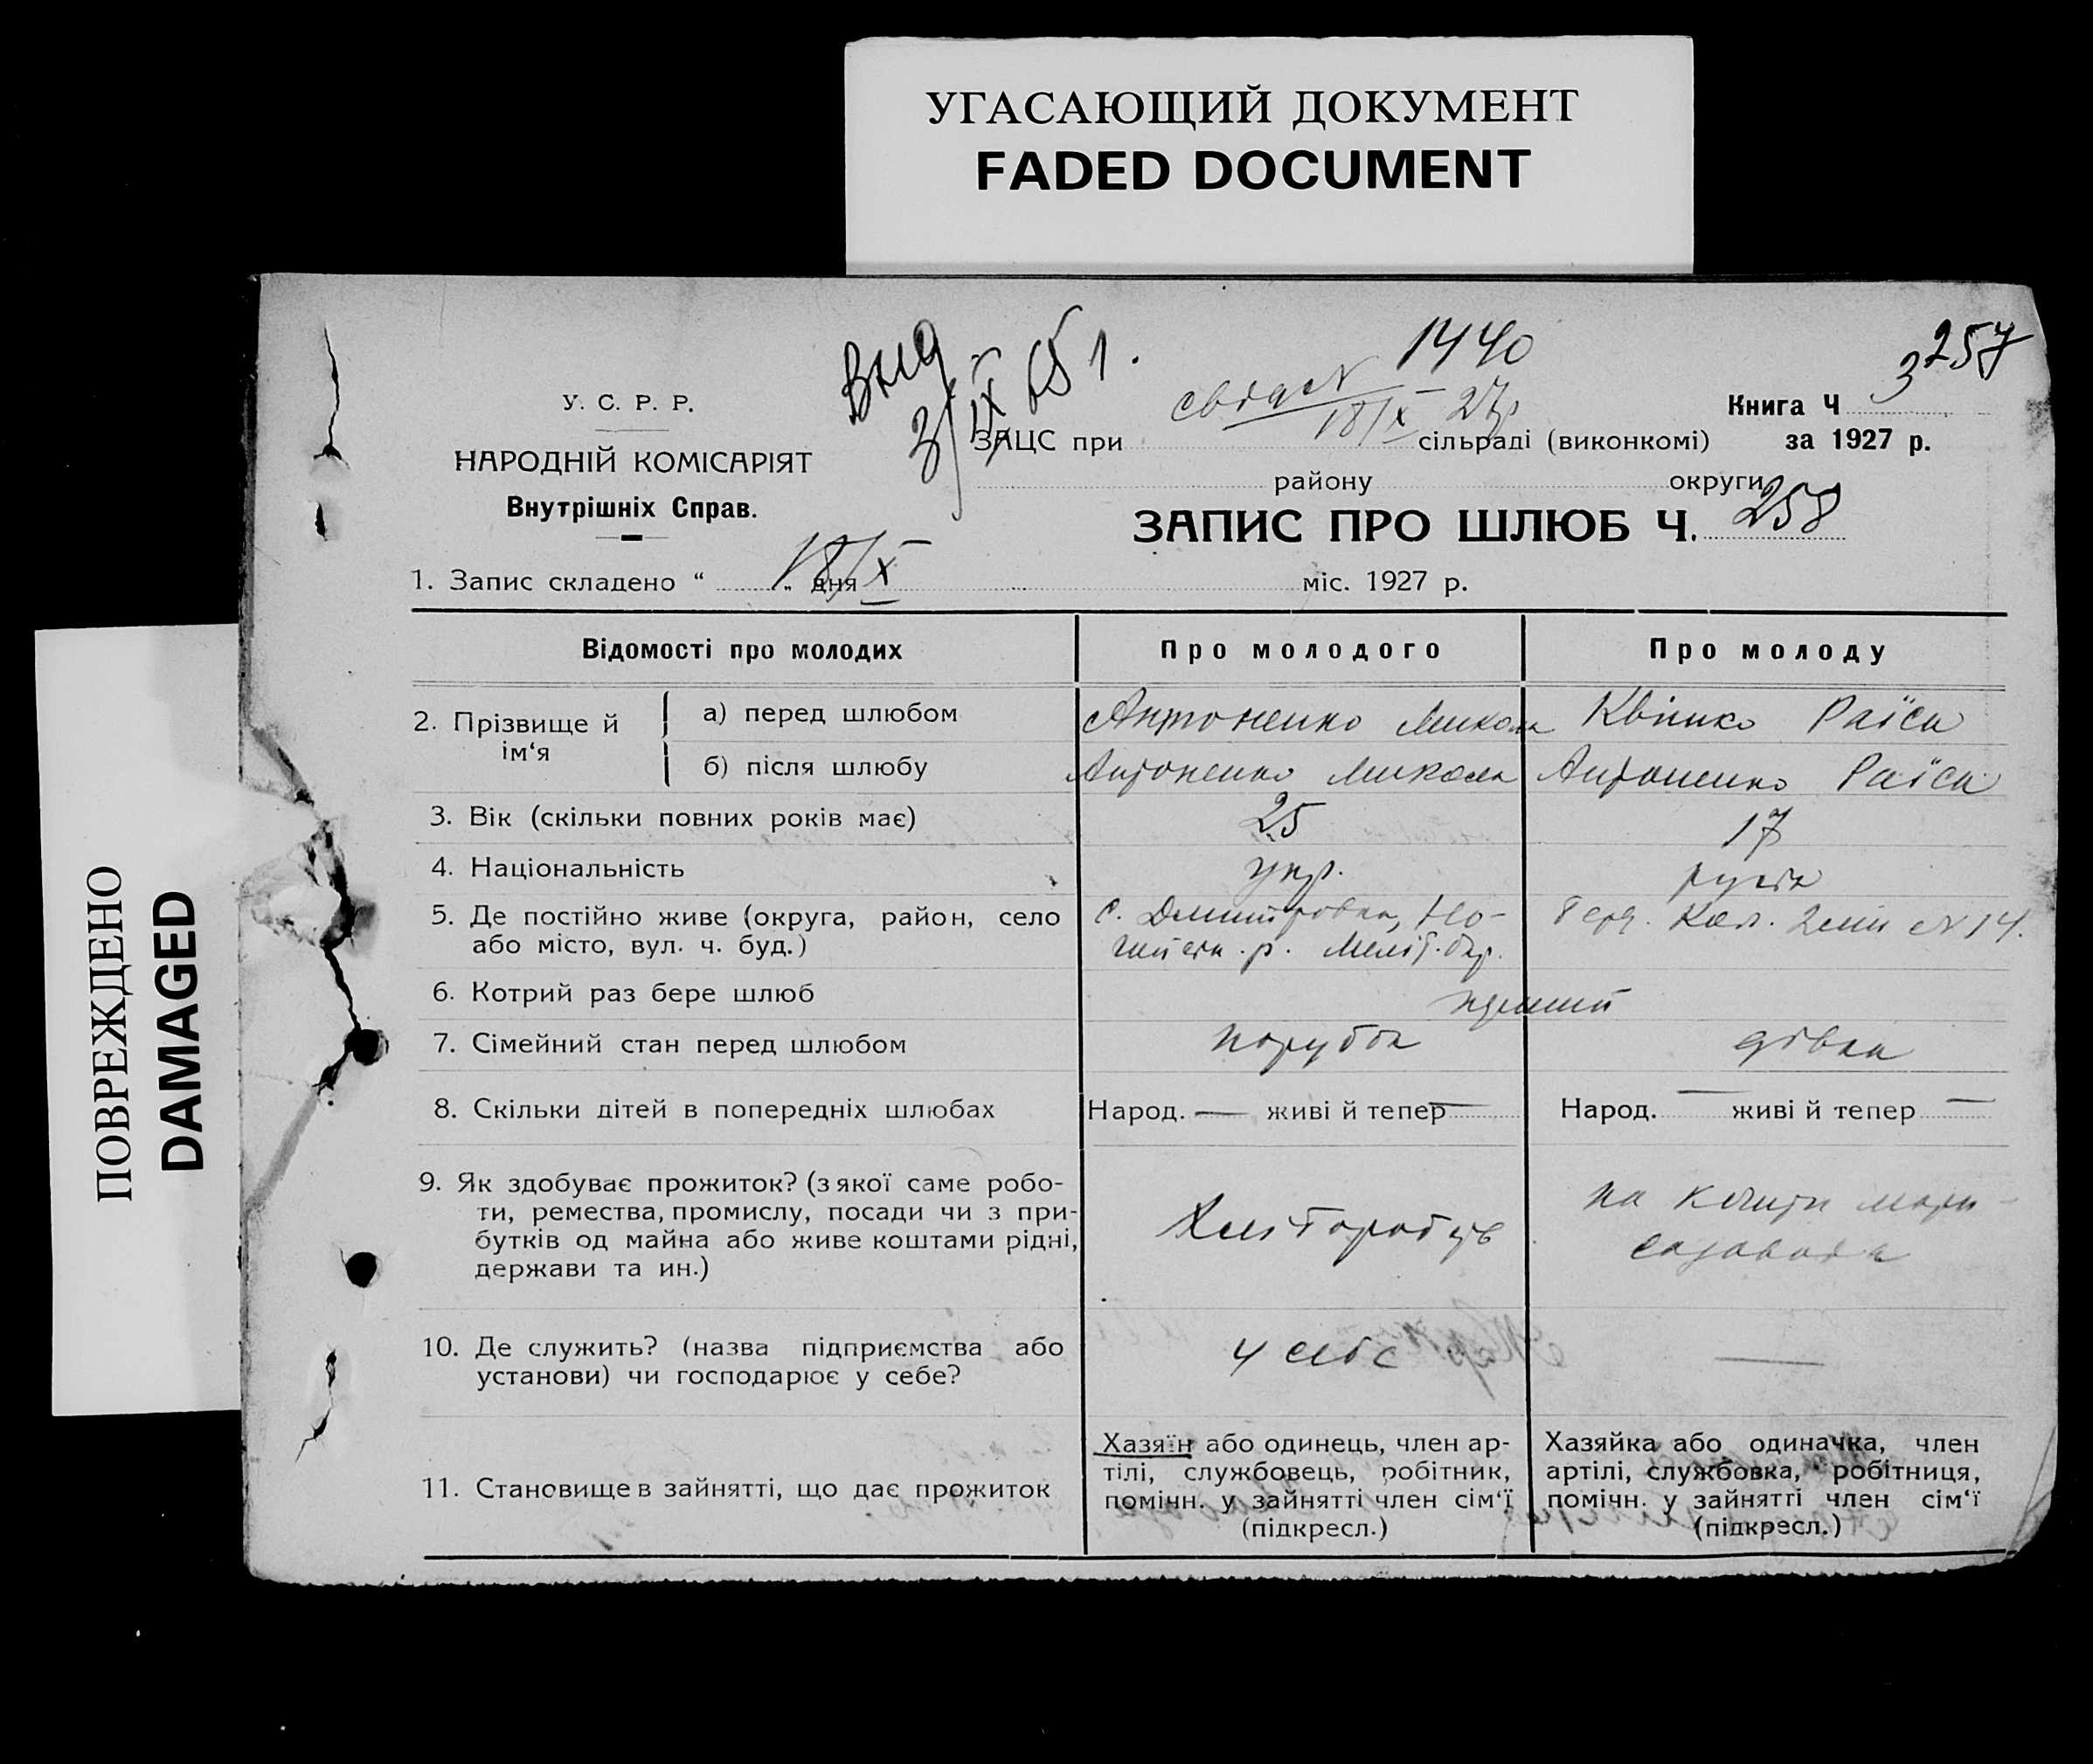 УГАСАЮЩИЙ ДОКУМЕНТ
FADED DOCUMENT
ПОВРЕЖДЕНО
DAMAGED
257
1440
3
У. С. Р. Р.
НАРОДНІЙ КОМІСАРІЯТ
Внутрішніх Справ.
18/X 27р
Книга Ч
ЗАЦС при сільраді (виконкомі) за 1927 р.
району округи
ЗАПИС ПРО ШЛЮБ Ч. 258
1. Запис складено “ 18/X „ дня міс. 1927 р.
Відомості про молодих Про молодого Про молоду
2. Прізвище й ім‘я
а) перед шлюбом Антоненко Микола Квітко Раїса
б) після шлюбу Антоненко Микола Антоненко Раїса
3. Вік (скільки повних років має) 25 17
4. Національність укр.
5. Де постійно живе (округа, район, село с. Дмитровка, Но-
або місто, вул. ч. буд.) р. Меліт. окр. № 14.
6. Котрий раз бере шлюб перший
7. Сімейний стан перед шлюбом парубок дівка
8. Скільки дітей в попередніх шлюбах Народ. — живі й тепер — Народ. — живі й тепер —
9. Як здобуває прожиток? (з якої саме робо-
ти, ремества, промислу, посади чи з при-
бутків од майна або живе коштами рідні,
держави та ин.)
Хлібороб
на кошти
10. Де служить? (назва підприємства або
установи) чи господарює у себе?
у себе —
11. Становище в зайнятті, що дає прожиток
Хазяїн або одинець, член ар-
тілі, службовець, робітник,
помічн. у зайнятті член сім‘ї
(підкресл.)
Хазяйка або одиначка, член
артілі, службовка, робітниця,
помічн. у зайнятті член сім‘ї
(підкресл.)